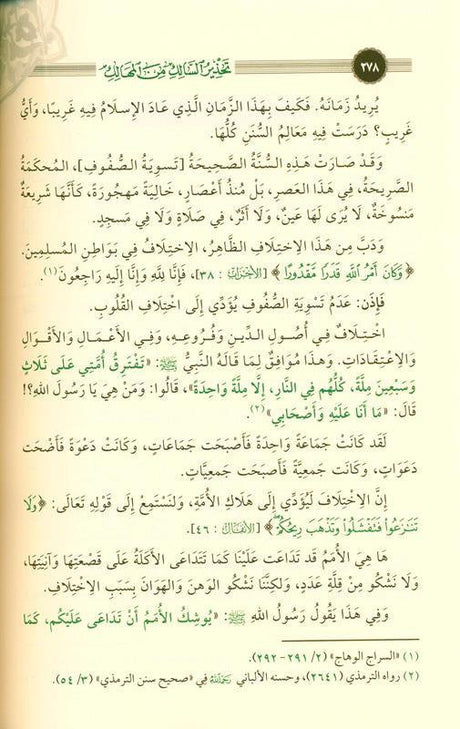 ٣٧٨
تَحْذِيرُ السَّالِكِ مِنَ المَهَالِكِ
يُرِيدُ زَمَانَهُ. فَكَيفَ بِهَذَا الزَّمَانِ الَّذِي عَادَ الإِسلَامُ فِيهِ غَرِيبًا، وَأَيُّ
غَرِيبٍ؟ دَرَسَتْ فِيهِ مَعَالِمُ السُّنَنِ كُلُّهَا.
وَقَدْ صَارَتْ هَذِهِ السُّنَّةُ الصَّحِيحَةُ [تَسوِيَةُ الصُّفُوفِ]، المُحكَمَةُ
الصَّرِيحَةُ، فِي هَذَا العَصرِ، بَل مُنذُ أَعصَارٍ، خَالِيَةً مَهجُورَةً، كَأَنَّهَا شَرِيعَةٌ
مَنسُوخَةٌ، لَا يُرَى لَهَا عَينٌ، وَلَا أَثَرٌ، فِي صَلَاةٍ وَلَا فِي مَسجِدٍ.
وَدَبَّ مِن هَذَا الِاختِلَافِ الظَّاهِرِ، الِاختِلَافُ فِي بَوَاطِنِ المُسلِمِينَ.
﴿وَكَانَ أَمْرُ اللَّهِ قَدَرًا مَّقْدُورًا﴾ [الأحزاب : ٣٨]، فَإِنَّا لِلَّهِ وَإِنَّا إِلَيهِ رَاجِعُونَ(١).
فَإِذَن: عَدَمُ تَسوِيَةِ الصُّفُوفِ يُؤَدِّي إِلَى اختِلَافِ القُلُوبِ.
اختِلَافٌ فِي أُصُولِ الدِّينِ وَفُرُوعِهِ، وَفِي الأَعمَالِ وَالأَقوَالِ
وَالِاعتِقَادَاتِ. وَهذَا مُوَافِقٌ لِمَا قَالَهُ النَّبِيُّ ﷺ: «تَفتَرِقُ أُمَّتِي عَلَى ثَلَاثٍ
وَسَبعِينَ مِلَّةً، كُلُّهُم فِي النَّارِ، إِلَّا مِلَّةً وَاحِدَةً»، قَالُوا: وَمَنْ هِيَ يَا رَسُولَ اللهِ؟!
قَالَ: «مَا أَنَا عَلَيْهِ وَأَصْحَابِي»(٢).
لَقَد كَانَتْ جَمَاعَةً وَاحِدَةً فَأَصبَحَت جَمَاعَاتٍ، وَكَانَت دَعْوَةً فَأَضْحَت
دَعَوَاتٍ، وَكَانَت جَمعِيَّةً فَأَصبَحَت جَمعِيَّاتٍ.
إِنَّ الِاختِلَافَ لَيُؤَدِّي إِلَى هَلَاكِ الأُمَّةِ، وَلنَستَمِعْ إِلَى قَولِهِ تَعَالَى: ﴿وَلَا
تَنَازَعُوا فَتَفْشَلُوا وَتَذْهَبَ رِيحُكُمْ﴾ [الأنفال : ٤٦].
هَا هِيَ الأُمَمُ قَد تَدَاعَت عَلَيْنَا كَمَا تَتَدَاعَى الأَكَلَةُ عَلَى قَصْعَتِهَا وَآنِيَتِهَا،
وَلَا نَشكُو مِن قِلَّةِ عَدَدٍ، وَلكِنَّنَا نَشكُو الوَهنَ وَالهَوَانَ بِسَبَبِ الِاختِلَافِ.
وَفِي هَذَا يَقُولُ رَسُولُ اللهِ ﷺ: «يُوشِكُ الأُمَمُ أَنْ تَدَاعَى عَلَيكُم، كَمَا
(١) «السراج الوهاج» (٢/ ٢٩١-٢٩٢).
(٢) رواه الترمذي (٢٦٤١)، وحسنه الألباني رحمه الله في «صحيح سنن الترمذي» (٣/ ٥٤).